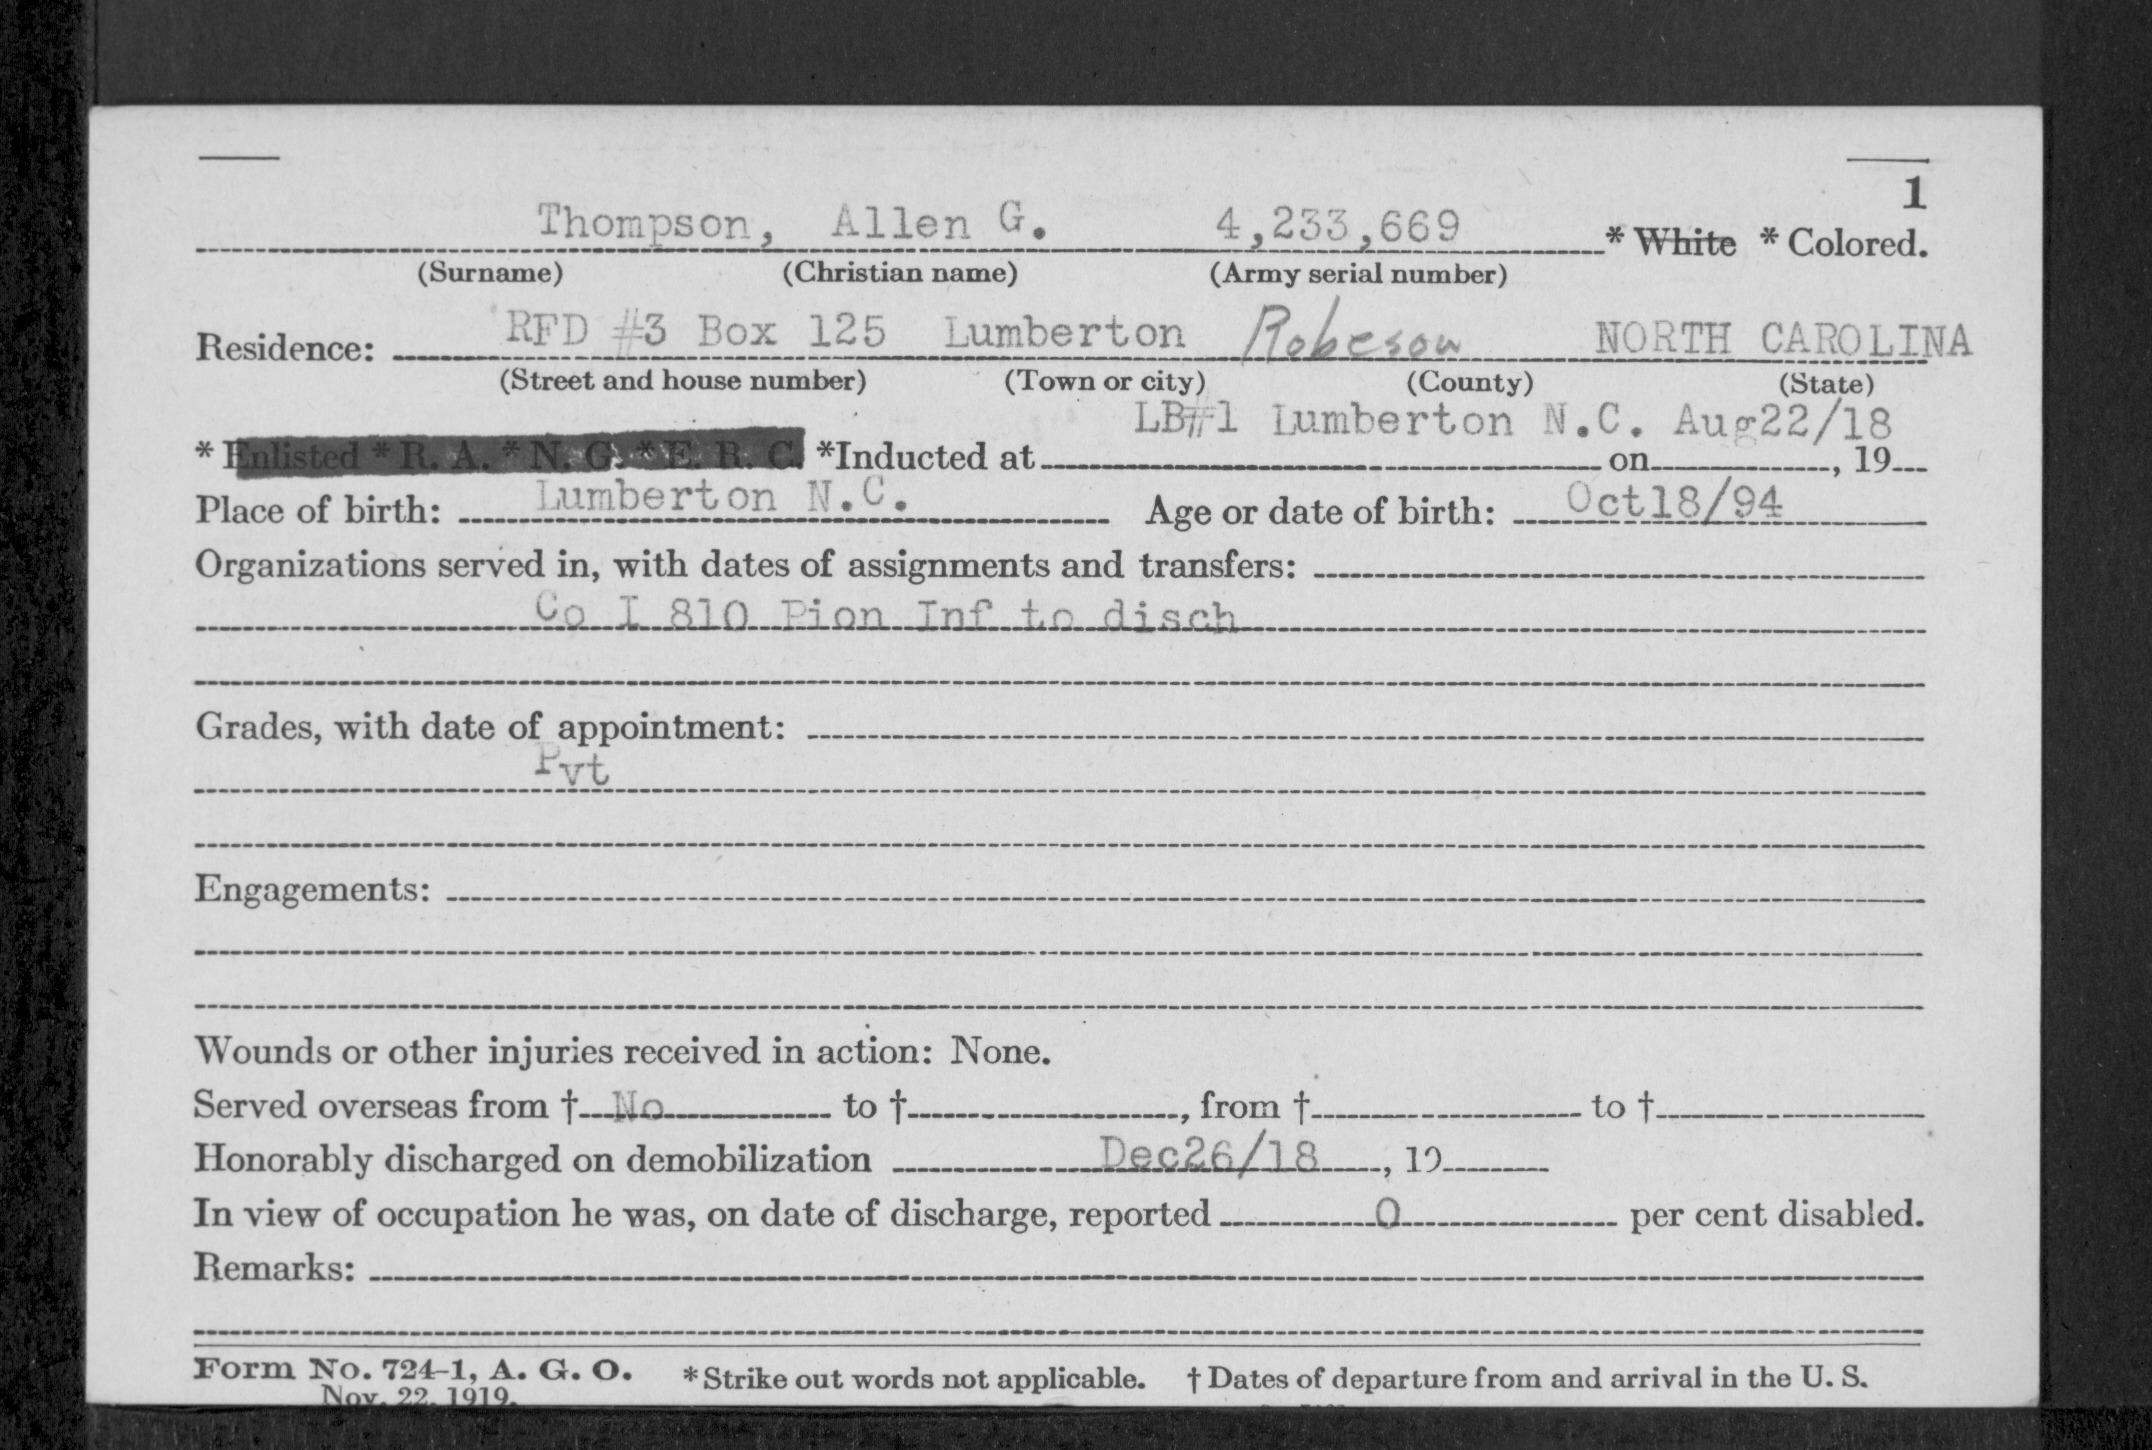 1
Thompson, Allen G. 4,233,669 * White * Colored.
(Surname) (Christian name) (Army serial number)
Residence: RFD #3 Box 125 Lumberton Robeson NORTH CAROLINA
(Street and house number) (Town or city) (County) (State)
LB#1 Lumberton N.C. Aug22/18
* Enlisted * R. A. * N. G. * E. R. C. *Inducted at on , 19
Place of birth: Lumberton N.C. Age or date of birth: Oct18/94
Organizations served in, with dates of assignments and transfers:
Co I 810 Pion Inf to disch
Grades, with date of appointment:
Pvt
Engagements:
Wounds or other injuries received in action: None.
Served overseas from † No to † , from † to †
Honorably discharged on demobilization Dec26/18 , 19
In view of occupation he was, on date of discharge, reported 0 per cent disabled.
Remarks:
Form No. 724-1, A. G. O. *Strike out words not applicable. † Dates of departure from and arrival in the U. S.
Nov. 22, 1919.